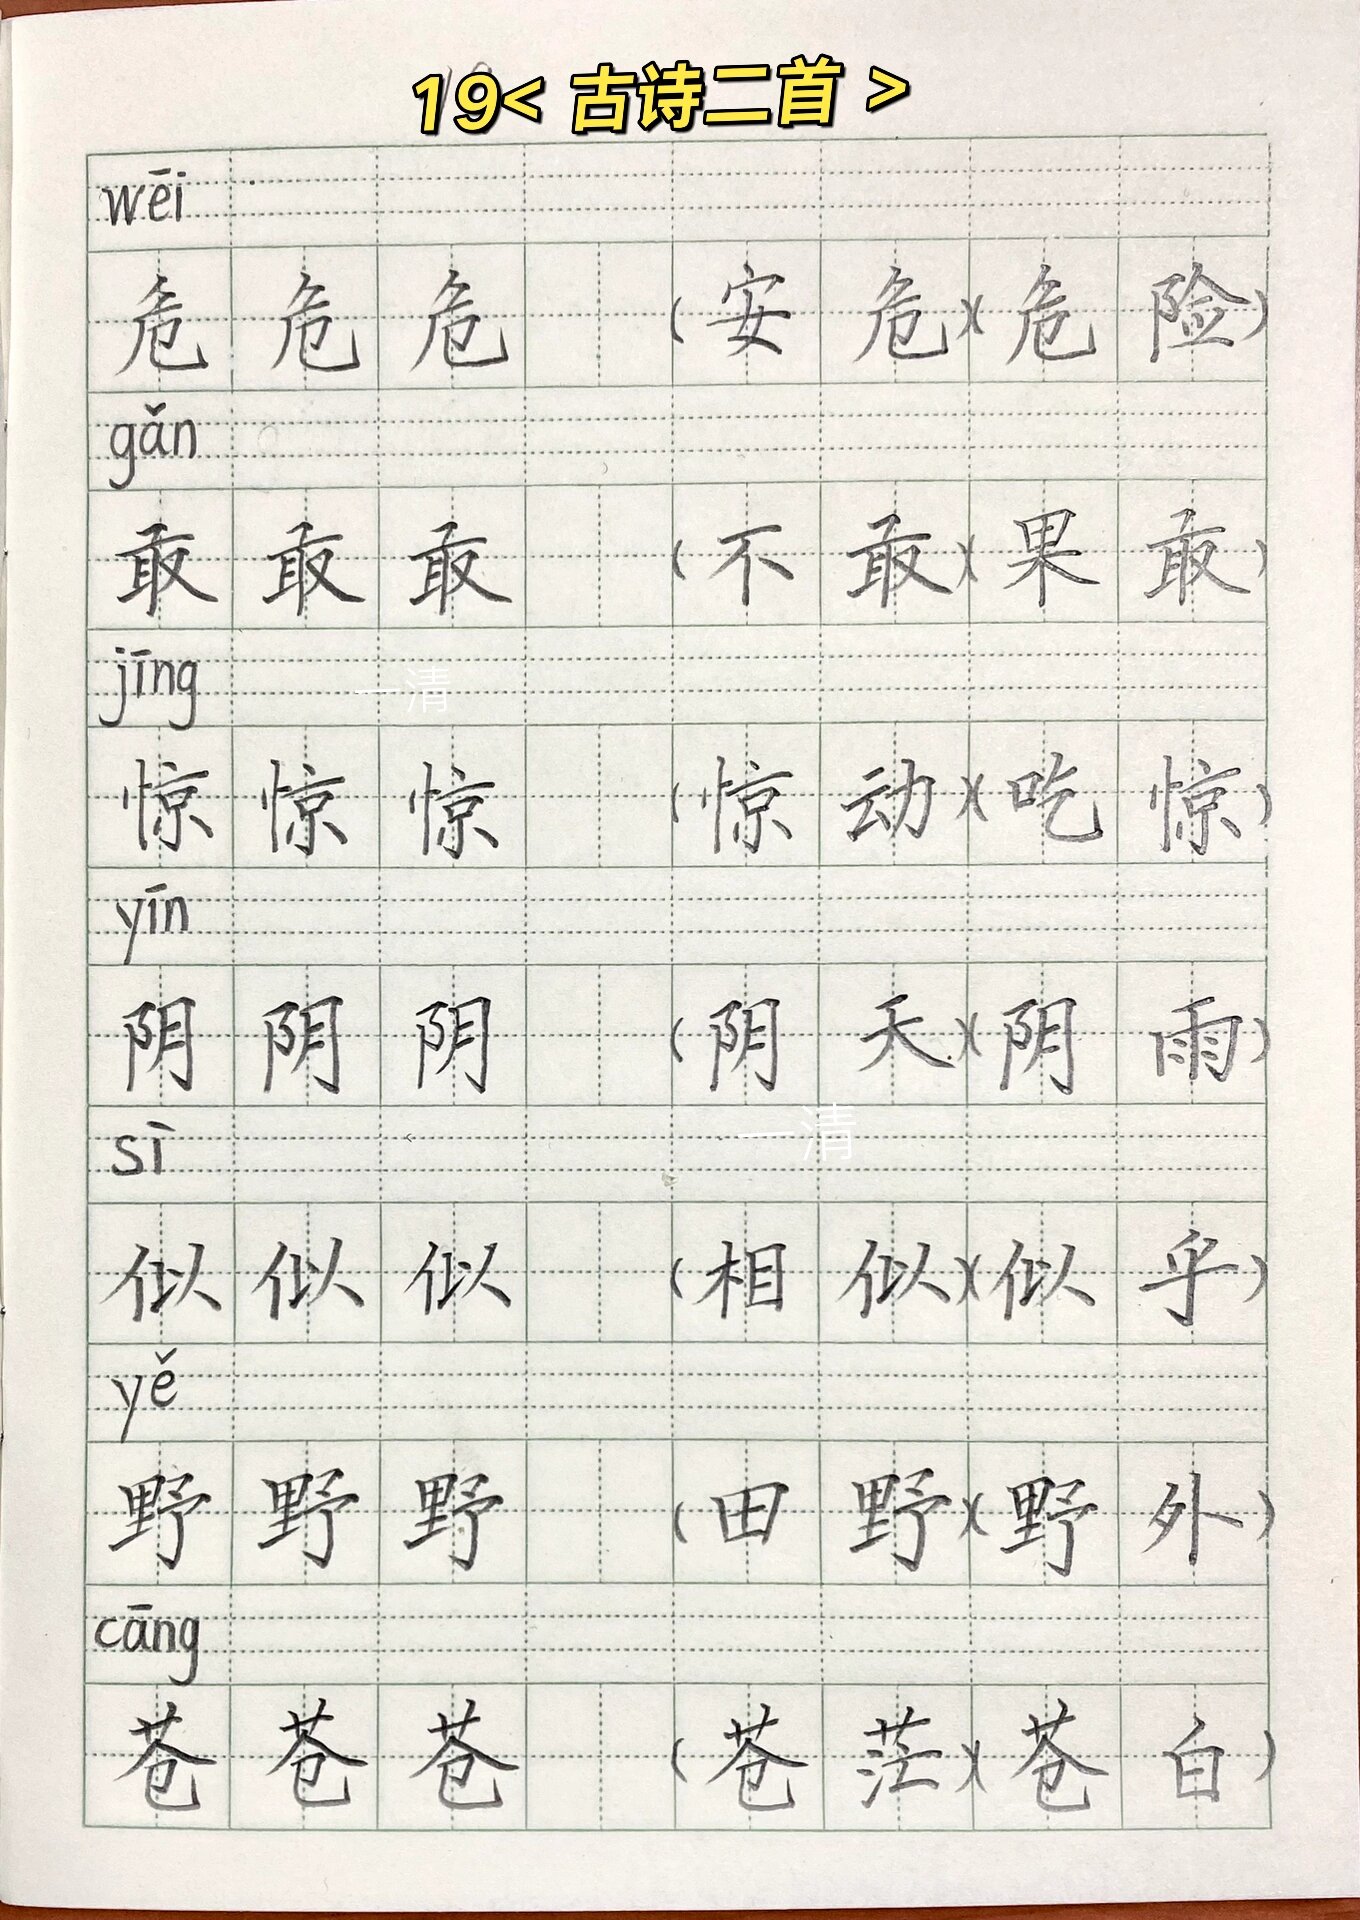 19< 古诗二首 >
wēi
危 危 危 (安 危)(危 险)
gǎn
敢 敢 敢 (不 敢)(果 敢)
jīng
一清
惊 惊 惊 (惊 动)(吃 惊)
yīn
阴 阴 阴 (阴 天)(阴 雨)
sì
一清
似 似 似 (相 似)(似 乎)
yě
野 野 野 (田 野)(野 外)
cāng
苍 苍 苍 (苍 茫)(苍 白)